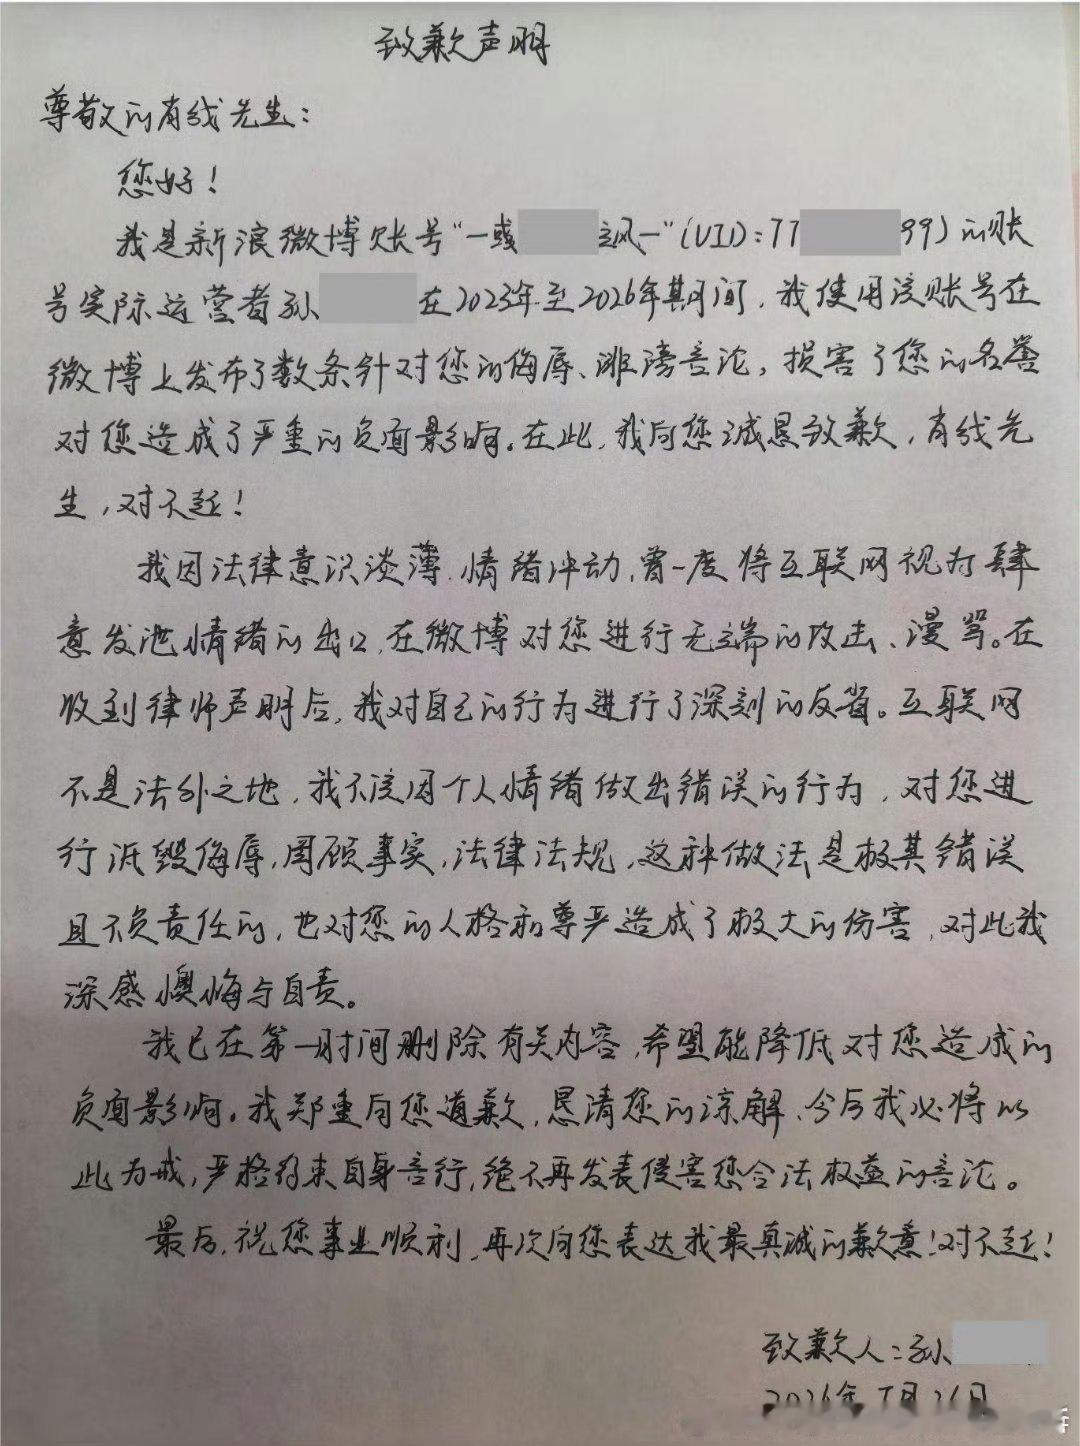 致歉声明
尊敬的有线先生：
您好！
我是新浪微博账号“一或 立风一”（UID：77 99）的账
号实际运营者孙 在2023年至2026年期间，我使用该账号在
微博上发布了数条针对您的侮辱、诽谤言论，损害了您的名誉
对您造成了严重的负面影响。在此，我向您诚恳致歉，有线先
生，对不起！
我因法律意识淡薄，情绪冲动，曾一度将互联网视为肆
意发泄情绪的出口，在微博对您进行无端的攻击、漫骂。在
收到律师声明后，我对自己的行为进行了深刻的反省。互联网
不是法外之地，我不该因个人情绪做出错误的行为，对您进
行诋毁侮辱，罔顾事实，法律法规，这种做法是极其错误
且不负责任的，也对您的人格和尊严造成了极大的伤害，对此我
深感懊悔与自责。
我已在第一时间删除有关内容，希望能降低对您造成的
负面影响。我郑重向您道歉，恳请您的谅解，今后我必将以
此为戒，严格约束自身言行，绝不再发表侵害您合法权益的言论。
最后，祝您事业顺利，再次向您表达我最真诚的歉意！对不起！
致歉人：孙
2026年 月26日